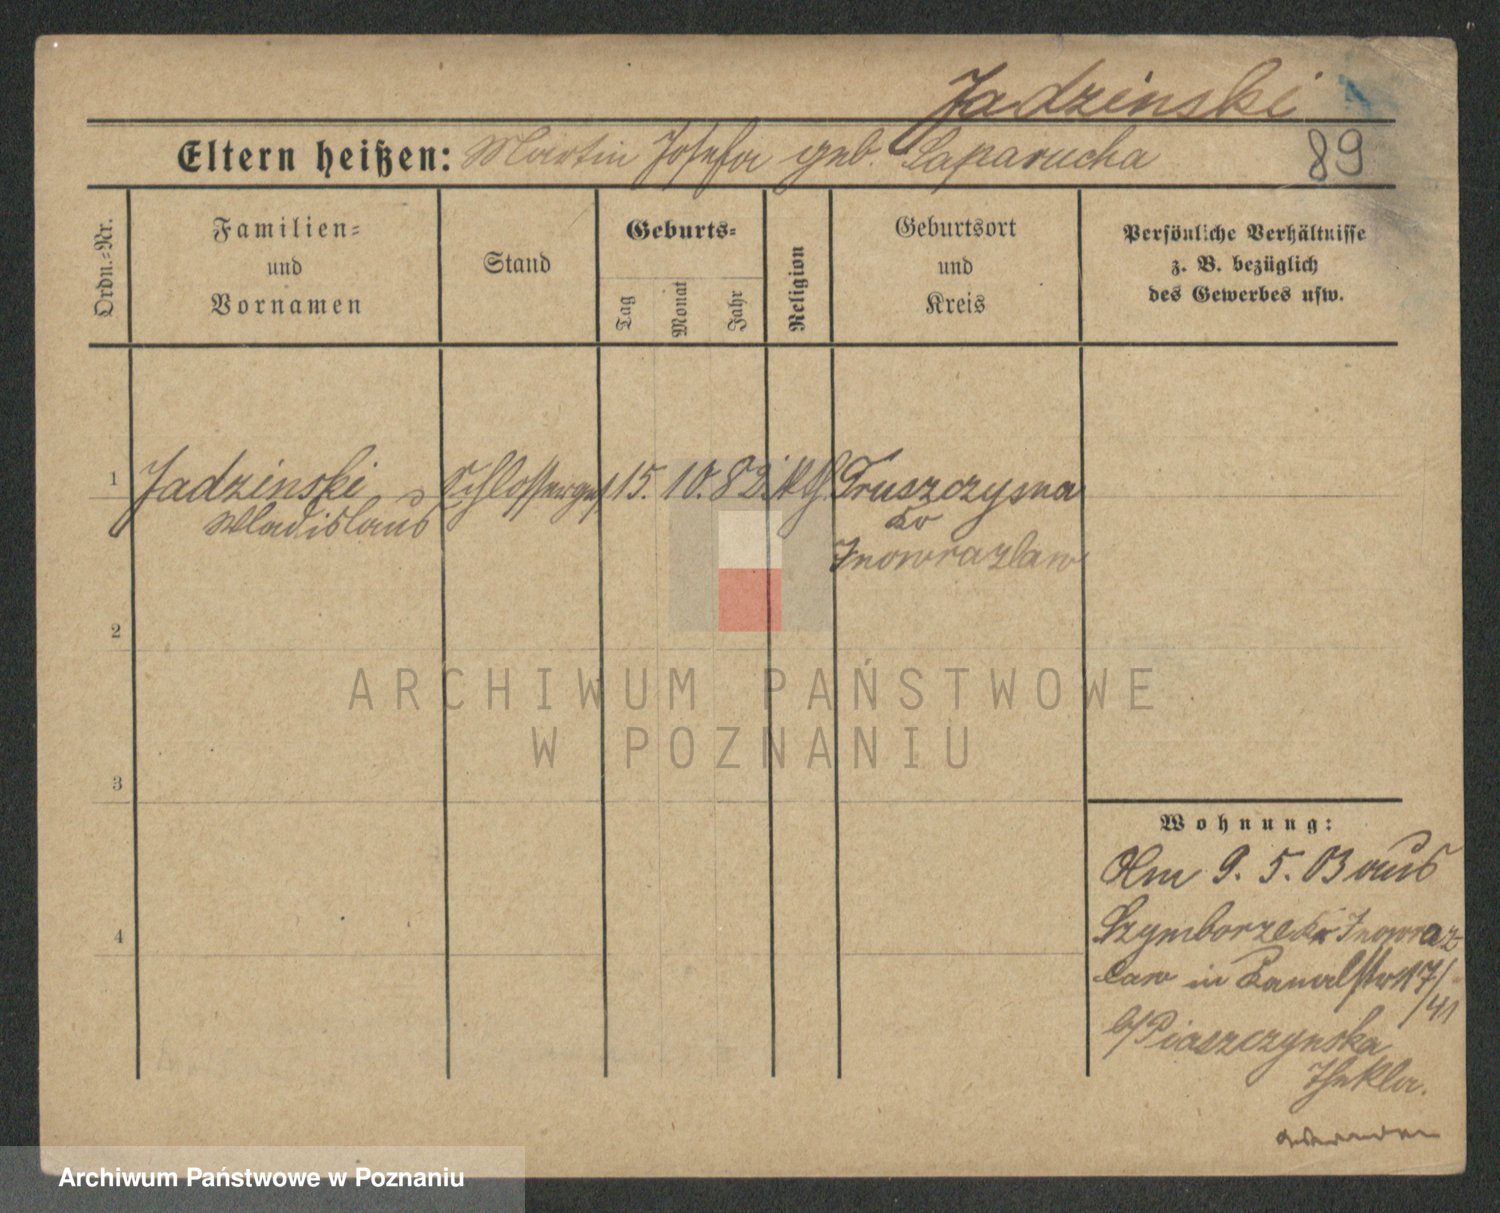 Jadzinski
Eltern heißen: Martin Josefa geb. Laparucha
89
Ordn.-Nr.
Familien-
und
Vornamen
Stand
Geburts-
Tag
Monat
Jahr
Religion
Geburtsort
und
Kreis
Persönliche Verhältnisse
z. B. bezüglich
des Gewerbes usw.
1
Jadzinski
Wladislaus
Schlosserges
15. 10. 82.
kth
Truszczysna
Kr
Inowrazlaw
2
3
4
ARCHIWUM PAŃSTWOWE
W POZNANIU
Wohnung:
Am 9. 5. 03 aus
Szymborze Kr Inowraz
law in Kanalstr 17/
/41
b/Piaszczynska
Thekla.
Archiwum Państwowe w Poznaniu